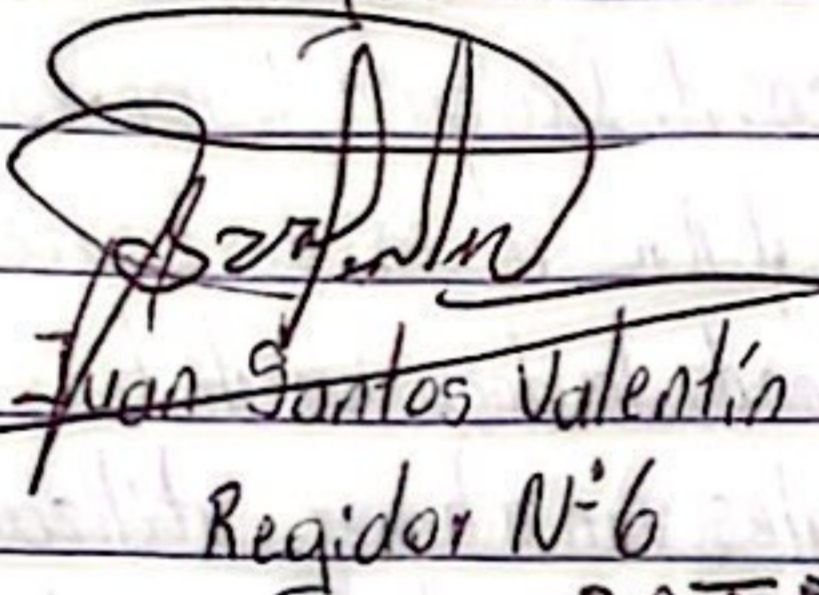 Juan Santos Valentín
Regidor Nº 6